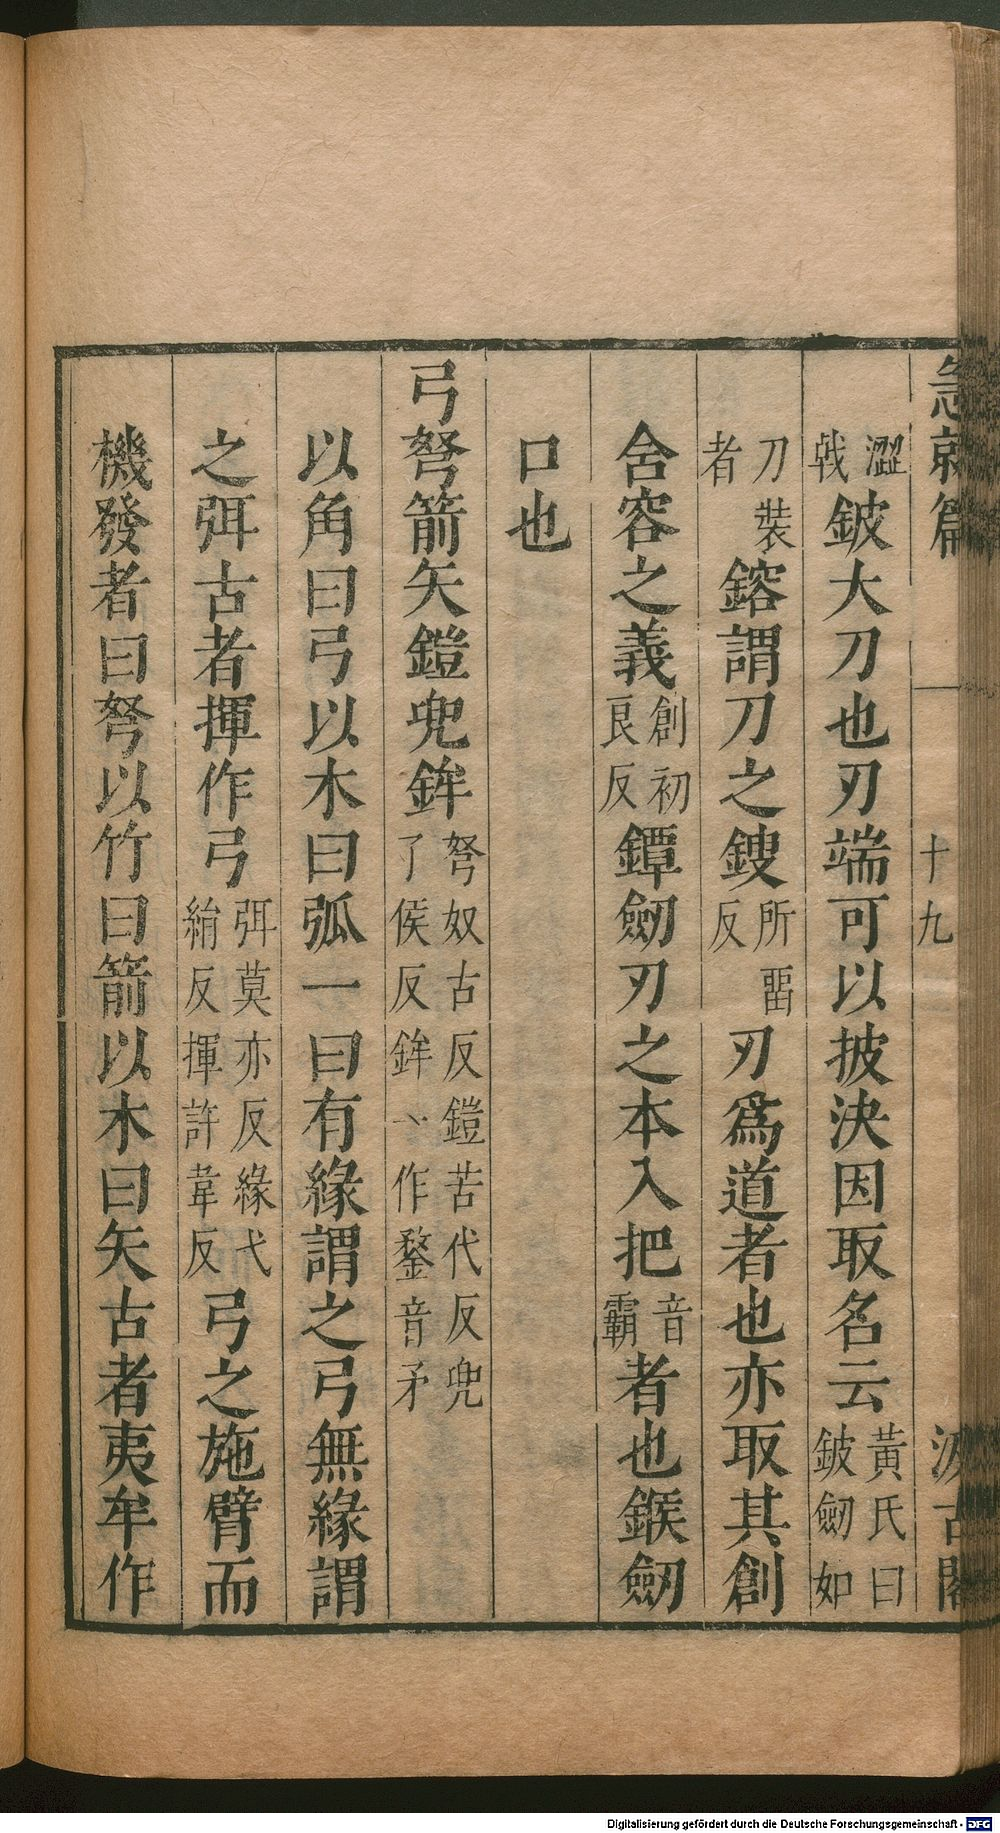 急就篇 十九 汲古閣
澀戟鈹大刀也刃端可以披決因取名云黃氏曰鈹劒如
刀裝者鎔謂刀之鎪所畱反刃爲道者也亦取其創
含容之義創初良反鐔劒刃之本入把音霸者也鍭劒
口也
弓弩箭矢鎧兜鉾弩奴古反鎧苦代反兜丁侯反鉾一作鍪音矛
以角曰弓以木曰弧一曰有緣謂之弓無緣謂
之弭古者揮作弓弭莫亦反緣弋絹反揮許韋反弓之施臂而
機發者曰弩以竹曰箭以木曰矢古者夷牟作
Digitalisierung gefördert durch die Deutsche Forschungsgemeinschaft - DFG